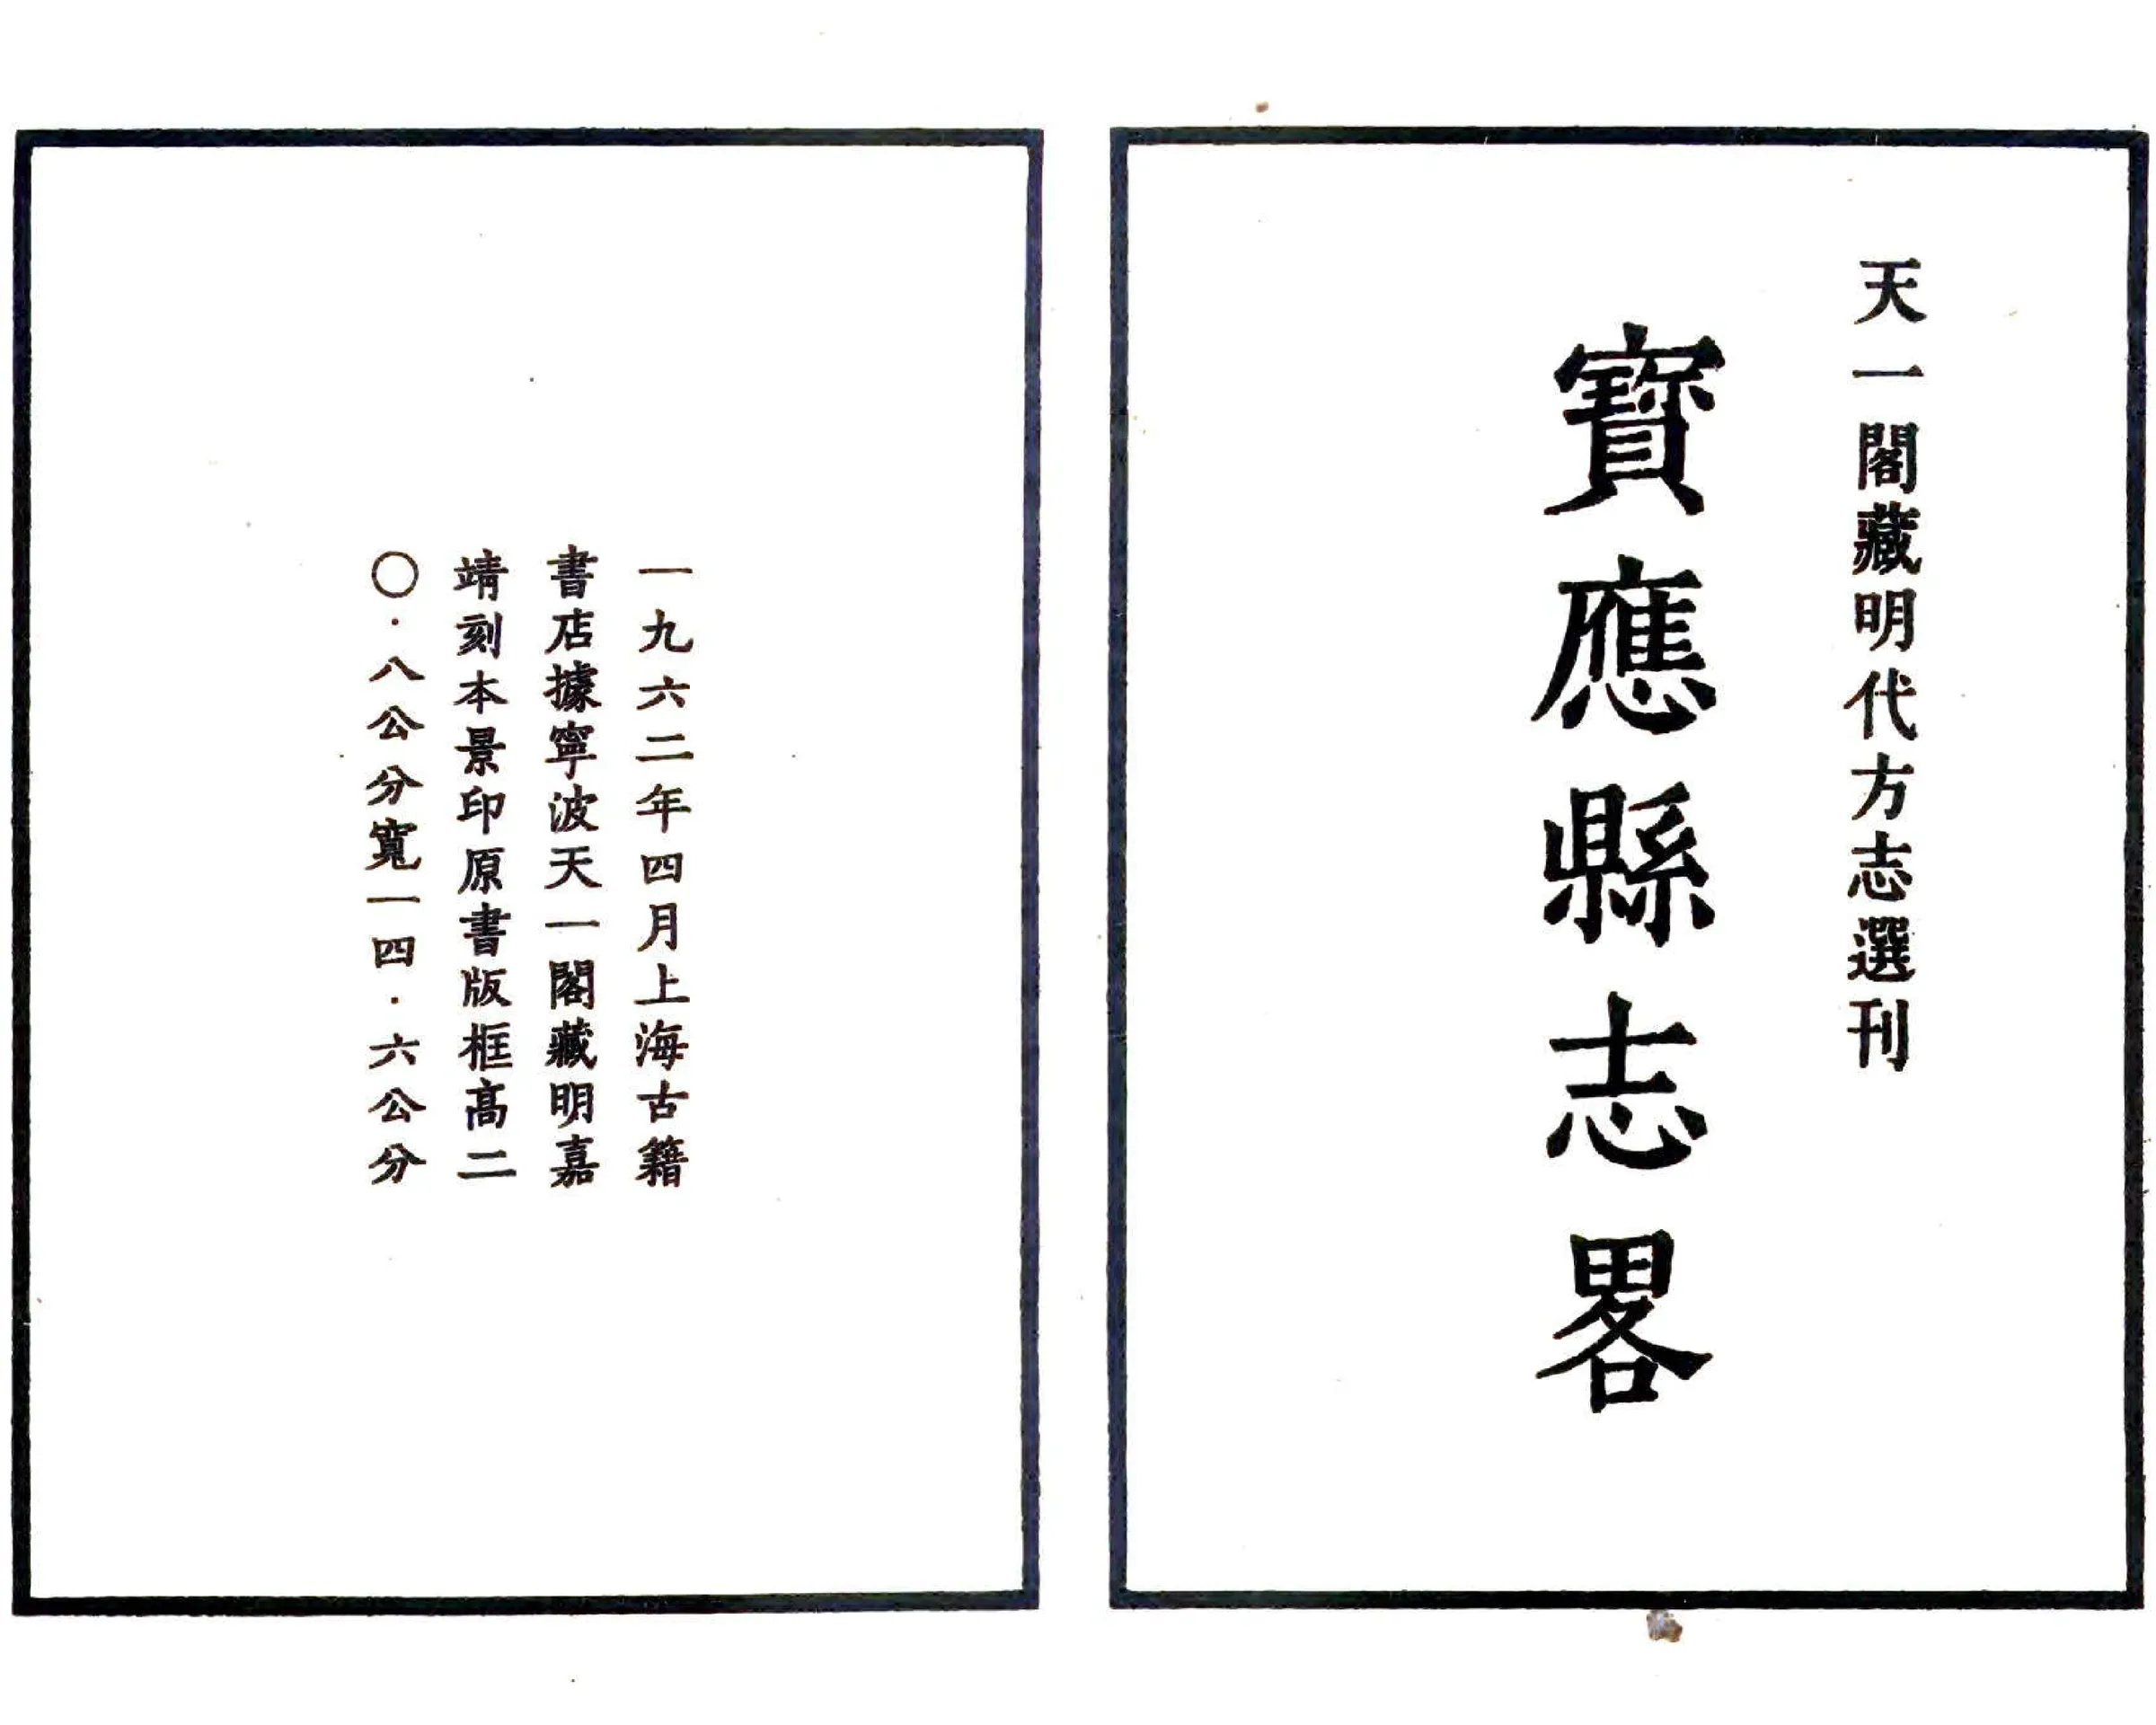 天一閣藏明代方志選刊
寳應縣志畧
一九六二年四月上海古籍
書店據寧波天一閣藏明嘉
靖刻本景印原書版框高二
〇·八公分寬一四·六公分